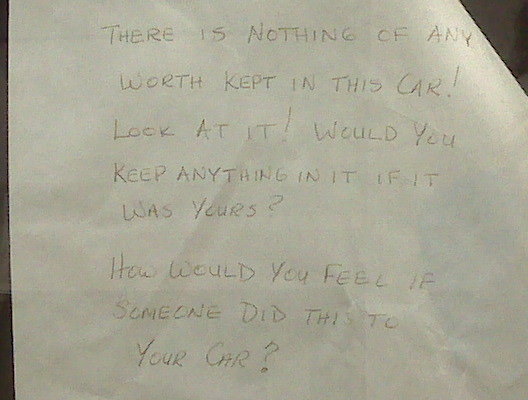 THERE IS NOTHING OF ANY
WORTH KEPT IN THIS CAR!
LOOK AT IT! WOULD YOU
KEEP ANYTHING IN IT IF IT
WAS YOURS?
HOW WOULD YOU FEEL IF
SOMEONE DID THIS TO
YOUR CAR?